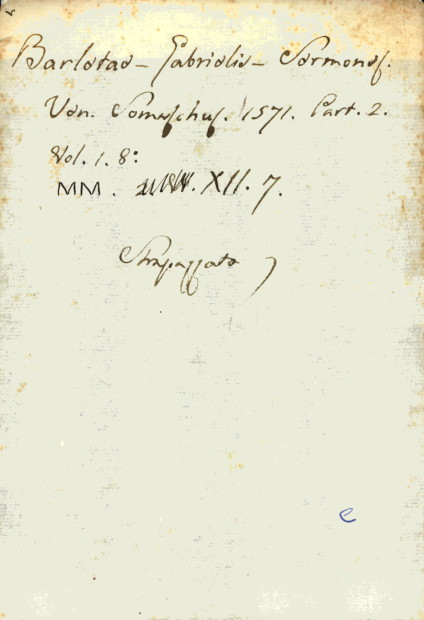 Barletae - Gabrielis - Sermones.
Ven. Somaschus. 1571. Part. 2.
Vol. 1. 8:
MM. XII. 7.
Strapazzato
e